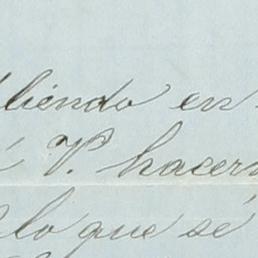 liendo en
V. hacer
lo que sé